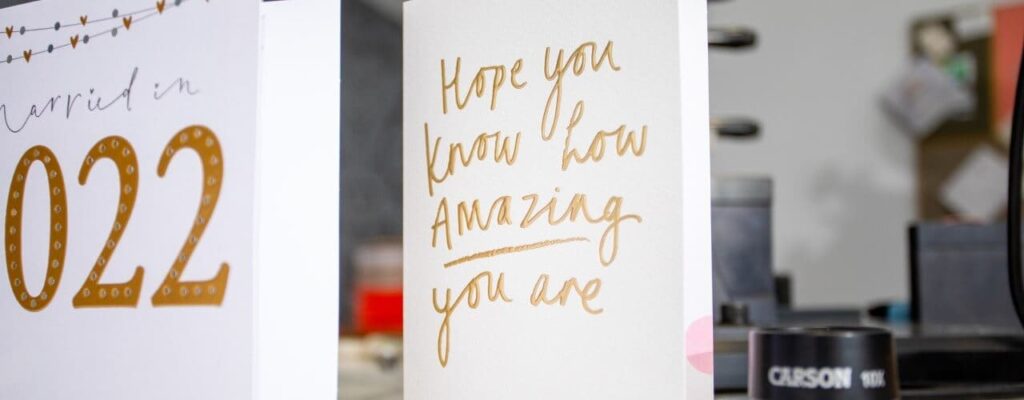 Married in
022
Hope you
know how
Amazing
you are
CARSON 10X